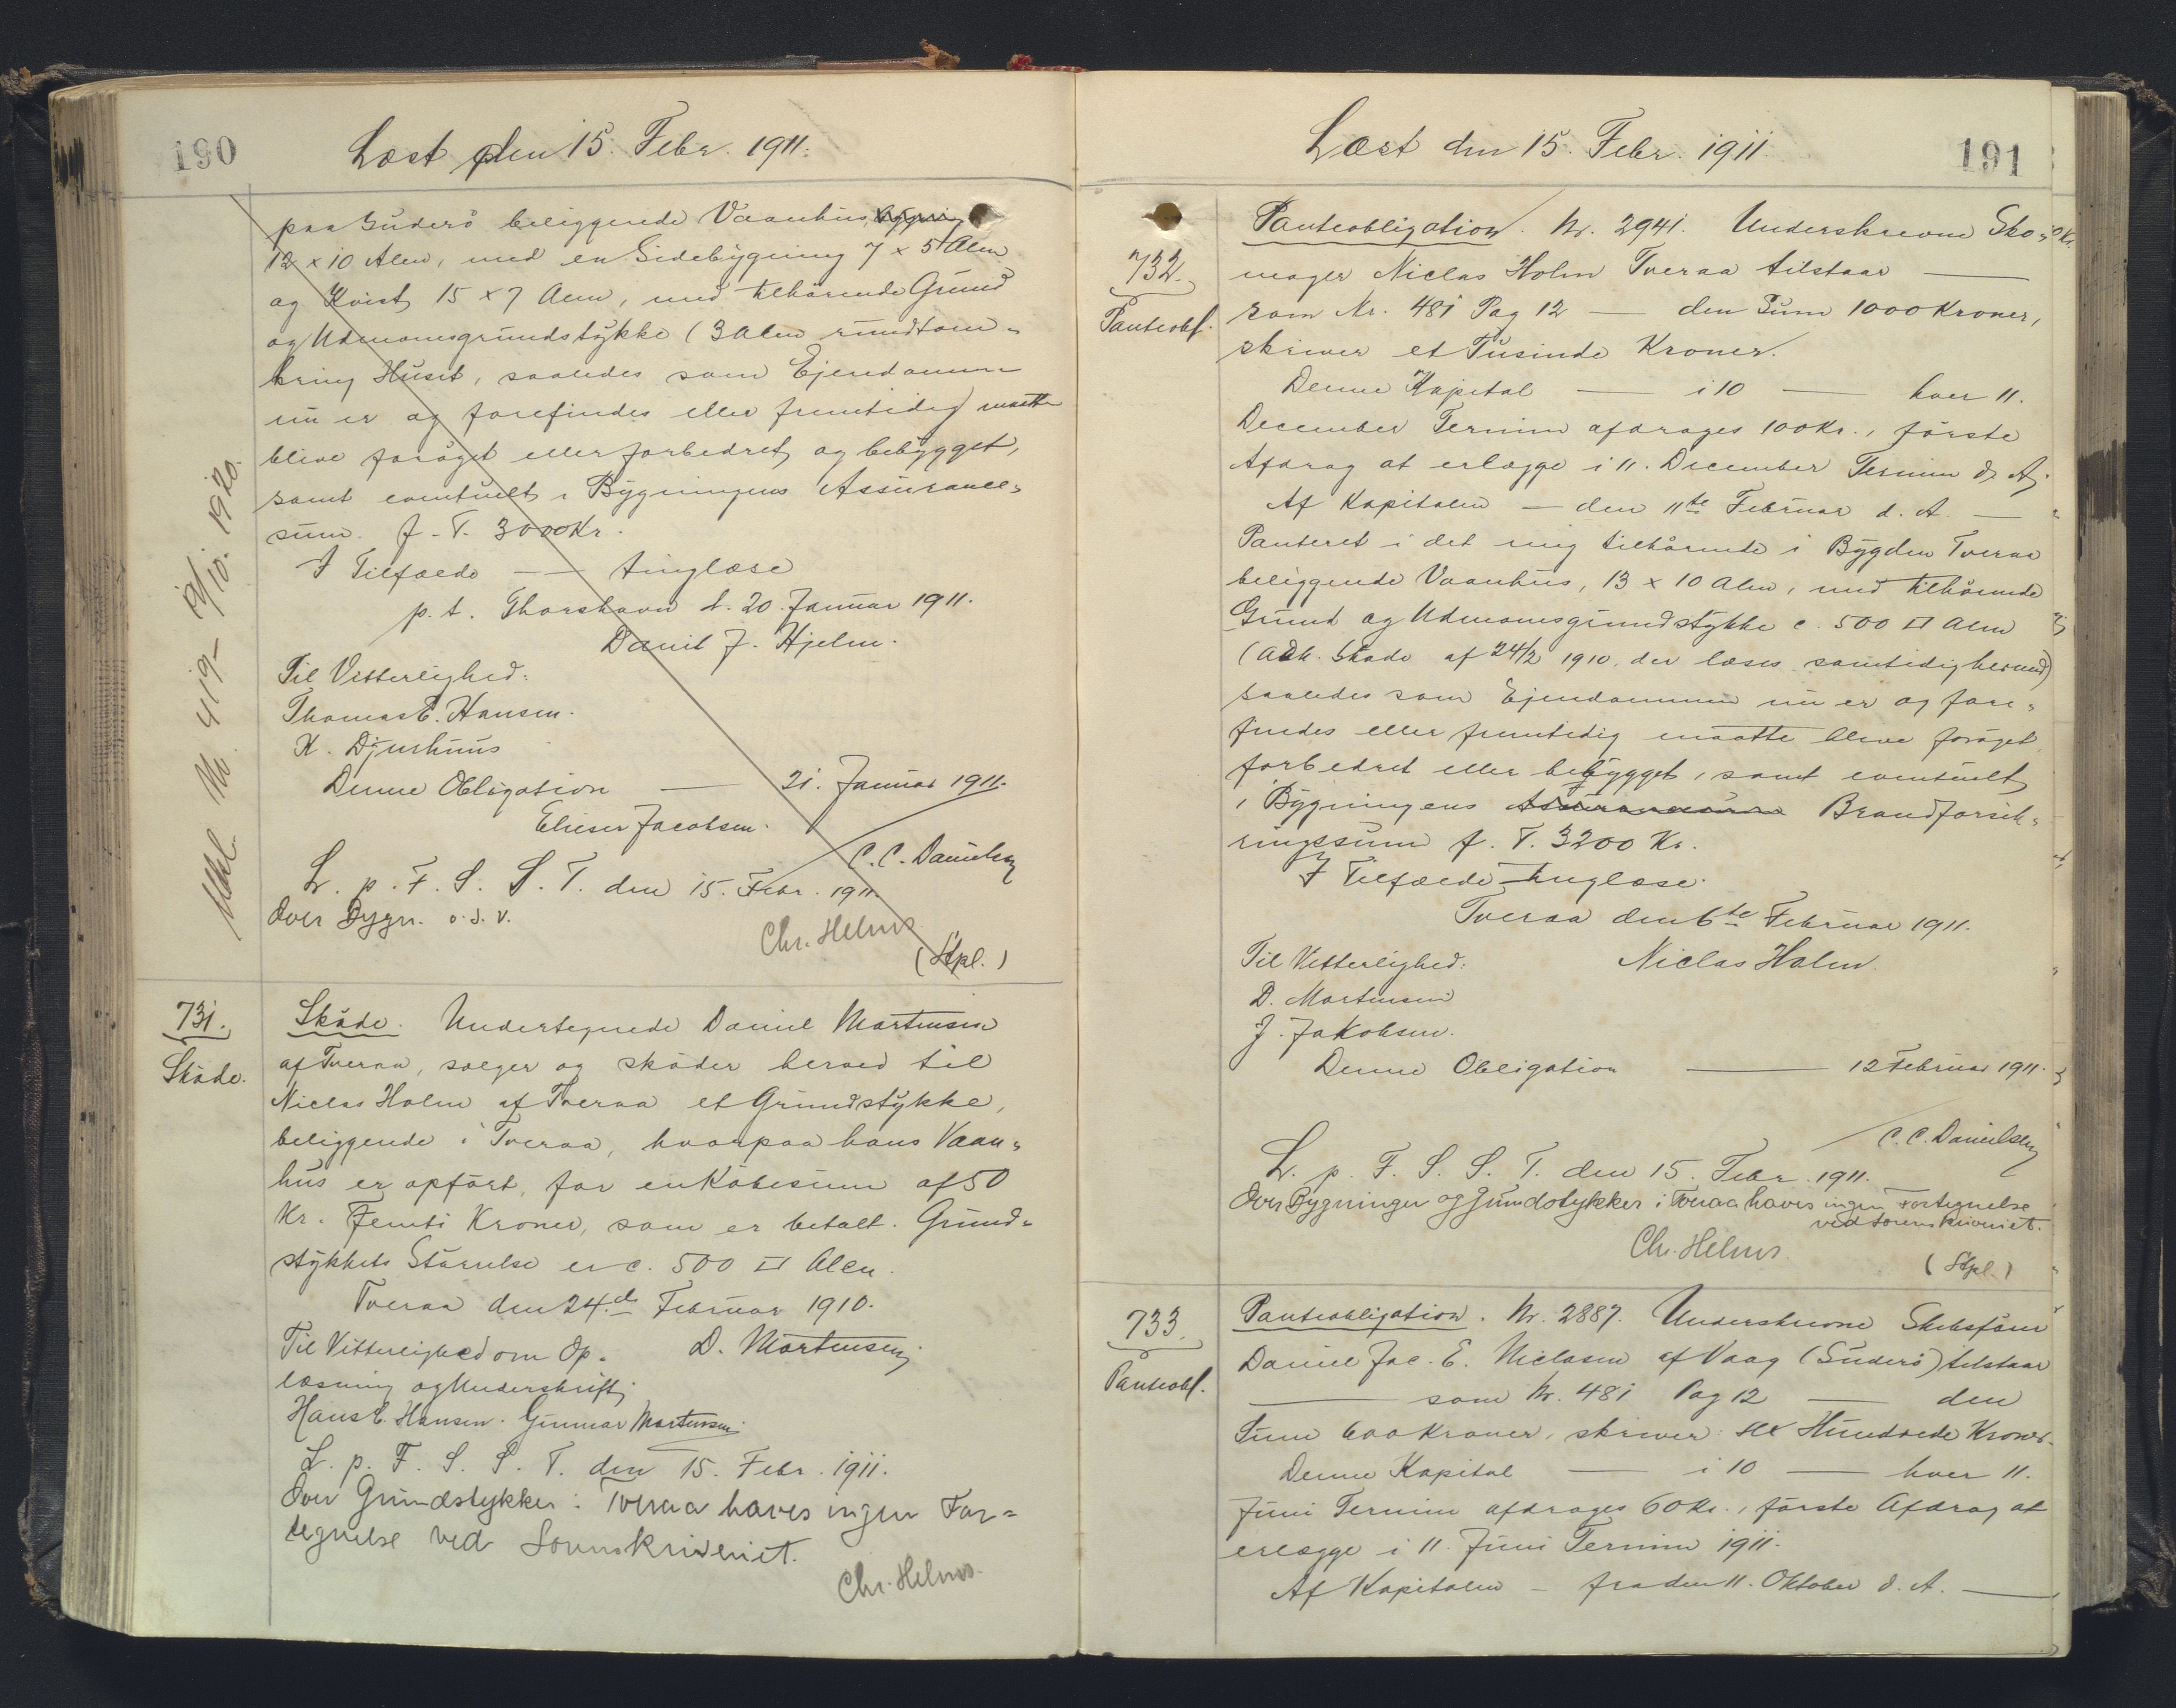 190
Læst den 15. Febr. 1911.
paa Suderö beliggende Vaanhus,
12 x 10 Alen, med en Sidebygning 7 x 5 Alen
og Kvist 15 x 7 Alen, med tilhörende Grund
og Udmarksgrundstykke (3 Alen rundtom-
kring Huset, saaledes som Ejendommen
nu er og forefindes eller fremtidig maatte
blive foröget eller forbedret og bebygget,
samt eventuelt i Bygningens Assurance-
sum f. T. 3000 Kr.
I Tilfælde — tinglæse
p. t. Thorshavn d. 20. Januar 1911.
Danil J. Hjelm.
Til Vitterlighed:
Thomas E. Hansen.
K. Djurhuus
Denne Obligation — 21. Januar 1911.
Elieser Jacobsen.
C. C. Danielsen
L. p. F. S. S. T. den 15. Febr. 1911.
Over Bygn. o. s. v.
Chr. Helms
(Stpl.)
731.
Sköde.
Sköde. Undertegnede Daniel Mortensen
af Tveraa, sælger og sköder herved til
Niclas Holm af Tveraa et Grundstykke,
beliggende i Tveraa, hvorpaa hans Vaan-
hus er opfört, for en Köbesum af 50
Kr. Femti Kroner, som er betalt. Grund-
stykkets Störrelse er c. 500 □ Alen.
Tveraa den 24.de Februar 1910.
Til Vitterlighed om Op- D. Mortensen
læsning og Underskrift:
Hans E. Hansen. Gunnar Mortensen.
L. p. F. S. S. T. den 15. Febr. 1911.
Over Grundstykker i Tveraa haves ingen For-
tegnelse ved Sorenskriveriet.
Chr. Helms.
Læst den 15. Febr. 1911.
191
732.
Panteobl.
Panteobligation. Nr. 2941. Underskrevne Sko-
mager Niclas Holm Tveraa tilstaar —
som Nr. 481 Pag 12 — den Sum 1000 Kroner,
skriver et Tusinde Kroner.
Denne Kapital — i 10 — hver 11.
December Termin afdrages 100 Kr., förste
Afdrag at erlægge i 11. December Termin d. A.
Af Kapitalen — den 11te Februar d. A. —
Panteret i det mig tilhörende i Bygden Tveraa
beliggende Vaanhus, 13 x 10 Alen, med tilhörende
Grund og Udmarksgrundstykke c. 500 □ Alen
(Adk. Sköde af 24/2 1910, der læses samtidig hermed)
saaledes som Ejendommen nu er og fore-
findes eller fremtidig maatte blive foröget
forbedret eller bebygget, samt eventuelt
i Bygningens Brandforsik-
ringssum f. T. 3200 Kr.
I Tilfælde — tinglæse.
Tveraa den 6te Februar 1911.
Til Vitterlighed: Niclas Holm.
D. Mortensen
J. Jakobsen.
Denne Obligation — 12 Februar 1911.
C. C. Danielsen
L. p. F. S. S. T. den 15. Febr. 1911.
Over Bygninger og Grundstykker i Tveraa haves ingen Fortegnelse
ved Sorenskriveriet.
Chr. Helms.
(Stpl.)
733.
Panteobl.
Panteobligation. Nr. 2887. Underskrevne Skibsförer
Daniel Jac. E. Niclasen af Vaag (Suderö) tilstaar
— som Nr. 481 Pag 12 — den
Sum 600 Kroner, skriver: sex Hundrede Kroner.
Denne Kapital — i 10 — hver 11.
Juni Termin afdrages 60 Kr., förste Afdrag at
erlægge i 11. Juni Termin 1911.
Af Kapitalen — fra den 11. Oktober d. A. —